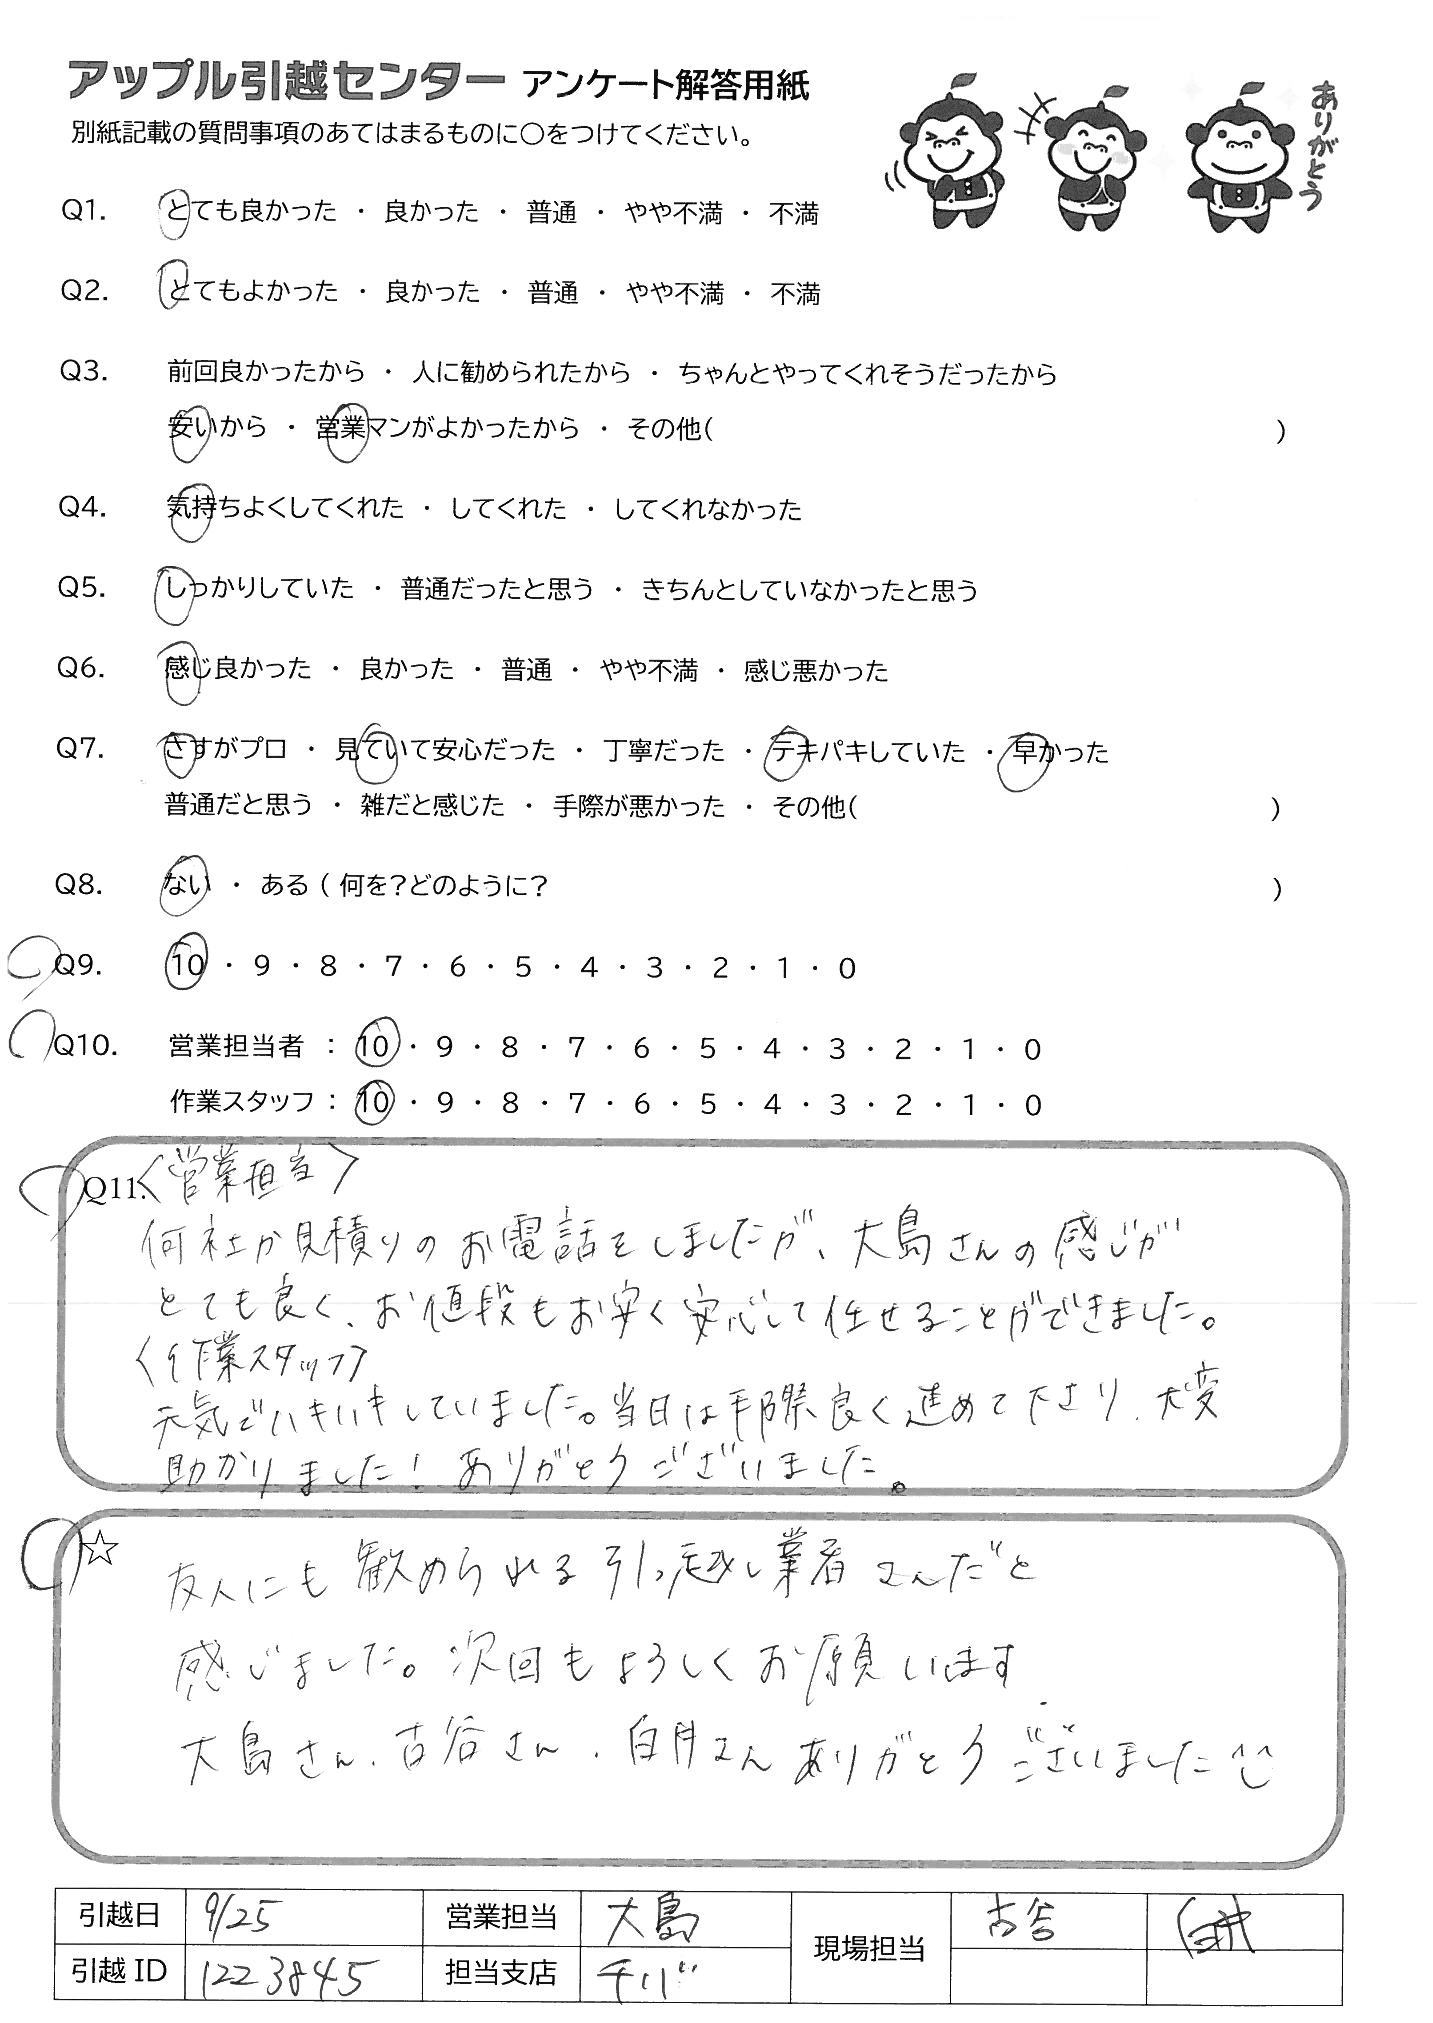 アップル引越センター アンケート解答用紙
別紙記載の質問事項のあてはまるものに○をつけてください。
ありがとう
Q1. とても良かった ・ 良かった ・ 普通 ・ やや不満 ・ 不満
Q2. とてもよかった ・ 良かった ・ 普通 ・ やや不満 ・ 不満
Q3. 前回良かったから ・ 人に勧められたから ・ ちゃんとやってくれそうだったから
安いから ・ 営業マンがよかったから ・ その他( )
Q4. 気持ちよくしてくれた ・ してくれた ・ してくれなかった
Q5. しっかりしていた ・ 普通だったと思う ・ きちんとしていなかったと思う
Q6. 感じ良かった ・ 良かった ・ 普通 ・ やや不満 ・ 感じ悪かった
Q7. さすがプロ ・ 見ていて安心だった ・ 丁寧だった ・ テキパキしていた ・ 早かった
普通だと思う ・ 雑だと感じた ・ 手際が悪かった ・ その他( )
Q8. ない ・ ある ( 何を？どのように？ )
Q9. 10 ・ 9 ・ 8 ・ 7 ・ 6 ・ 5 ・ 4 ・ 3 ・ 2 ・ 1 ・ 0
Q10. 営業担当者 : 10 ・ 9 ・ 8 ・ 7 ・ 6 ・ 5 ・ 4 ・ 3 ・ 2 ・ 1 ・ 0
作業スタッフ : 10 ・ 9 ・ 8 ・ 7 ・ 6 ・ 5 ・ 4 ・ 3 ・ 2 ・ 1 ・ 0
Q11. 〈営業担当〉
何社か見積りのお電話をしましたが、大島さんの感じが
とても良く、お値段もお安く安心して任せることができました。
〈作業スタッフ〉
元気でハキハキしていました。当日は手際良く進めて下さり、大変
助かりました！ありがとうございました。
☆ 友人にも勧められる引っ越し業者さんだと
感じました。次回もよろしくお願いします.
大島さん、古谷さん、白井さんありがとうございました^^
引越日 9/25 営業担当 大島 現場担当 古谷 白井
引越ID 1223845 担当支店 チバ